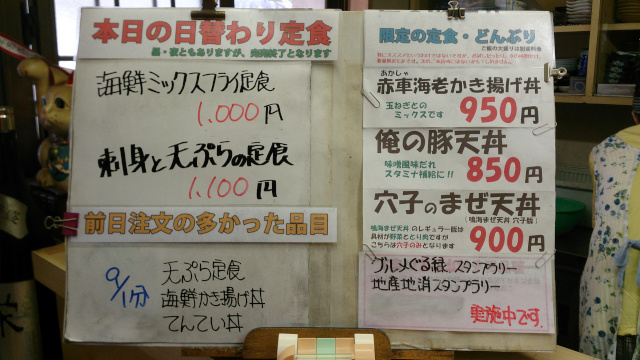 本日の日替わり定食
昼・夜ともありますが、売切終了となります
海鮮ミックスフライ定食
1,000円
刺身と天ぷらの定食
1,100円
前日注文の多かった品目
9/1分
天ぷら定食
海鮮かき揚げ丼
てんてい丼
限定の定食・どんぶり
ご飯の大盛りは別途料金
あかしゃ
赤車海老かき揚げ丼
玉ねぎとの
ミックスです
950円
俺の豚天丼
味噌風味だれ
スタミナ補給に!!
850円
穴子のまぜ天丼
(鳴海まぜ天丼 穴子版)
鳴海まぜ天丼 のレギュラー版は
具材が野菜ととり肉ですが
こちらは穴子のみとなります
900円
グルメぐる緑 スタンプラリー
地産地消スタンプラリー
実施中です.